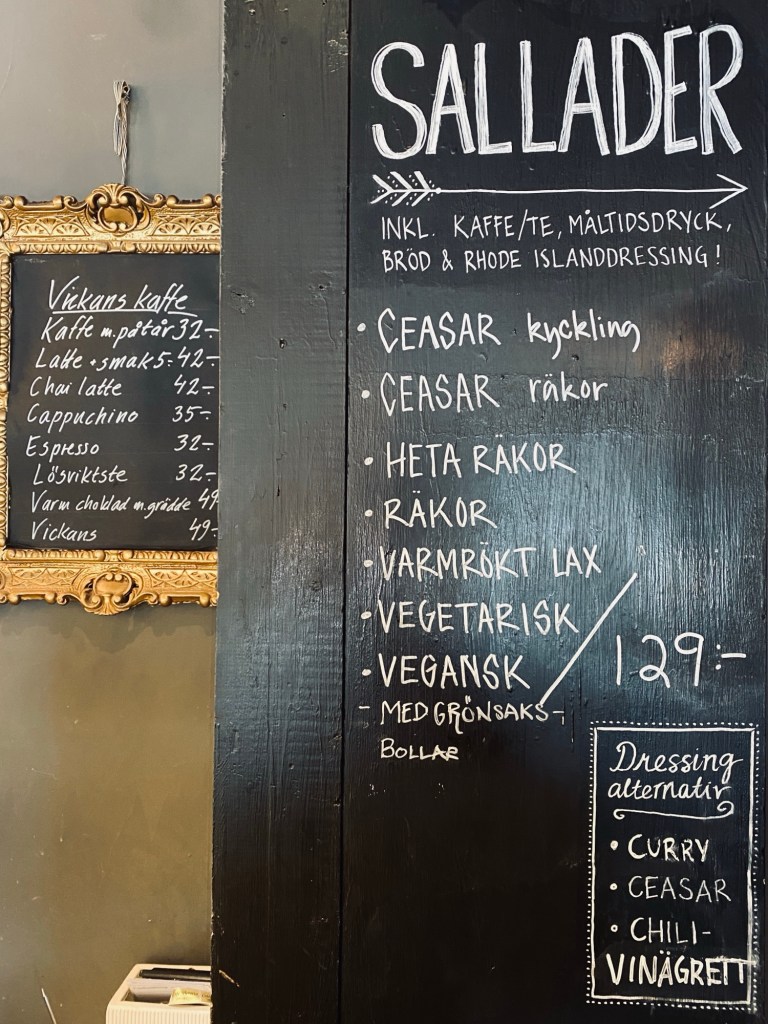 Vickans kaffe
Kaffe m.påtår 32-
Latte + smak 5:- 42-
Chai latte 42-
Cappuchino 35:-
Espresso 32-
Lösviktste 32-
Varm choklad m.grädde 49
Vickans 49-
SALLADER
INKL. KAFFE/TE, MÅLTIDSDRYCK,
BRÖD & RHODE ISLANDDRESSING!
• CEASAR kyckling
• CEASAR räkor
• HETA RÄKOR
• RÄKOR
• VARMRÖKT LAX
• VEGETARISK
• VEGANSK
- MED GRÖNSAKS-
BOLLAR
129:-
Dressing
alternativ
• CURRY
• CEASAR
• CHILI-
VINÄGRETT